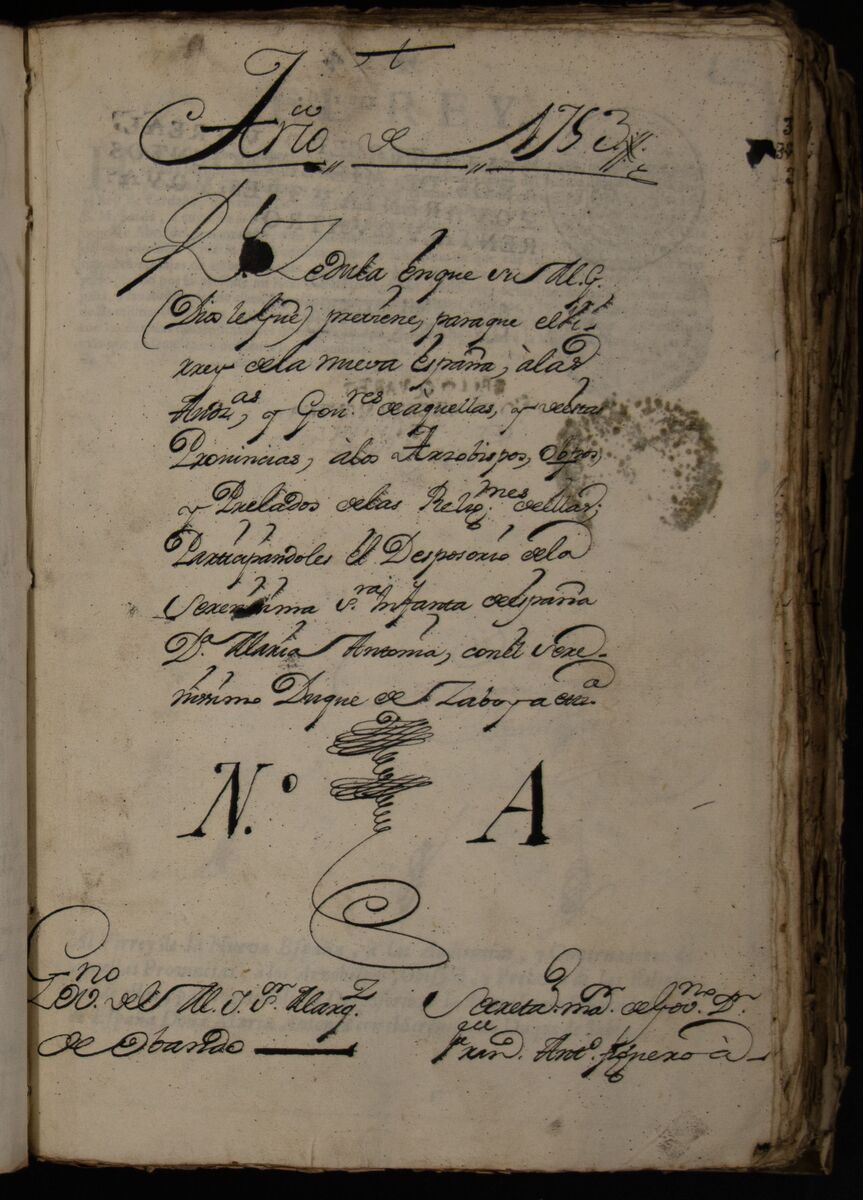 †
Año de 1753
Rl Zedula en que su M.G.
(Dios le Gue) previene, para que el Vi-
rrey de la nueva España, à las
Audz.as, y Gov.res de aquellas, y de estas
Provincias, à los Arzobispos, Obpos,
y Prelados de las Relig.nes de ellas;
Partizipandoles el Desposorio de la
Serenisima S.ra Infanta de España
D.a Maria Antonia, con el Sere-
nissimo Duque de Zaboya etc.a
N.o A
Gov.no del M. I. S.or Marq.z
de Obando
Secreta.a ma.or de Gov.no D.n
Ant.o